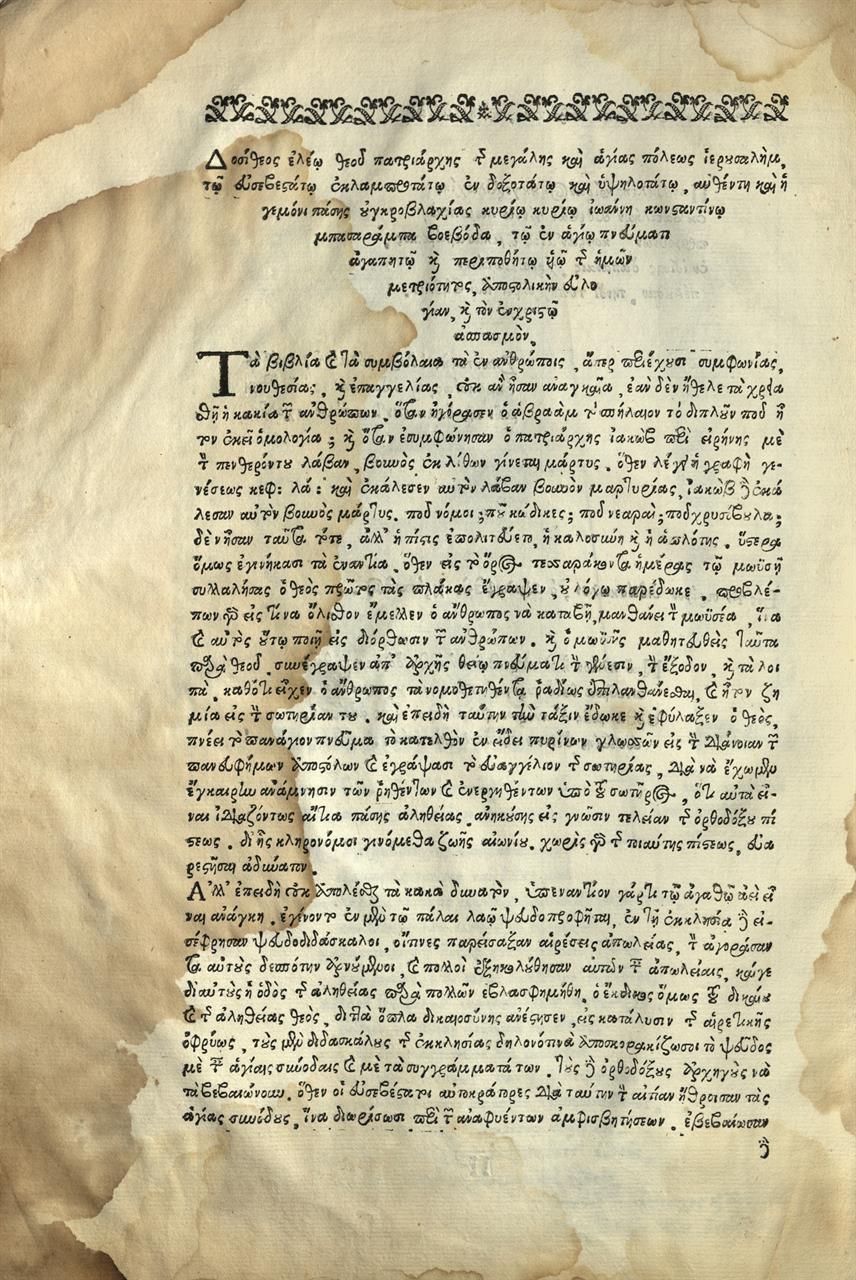 Δοσίθεος ἐλέῳ θεοῦ πατριάρχης τῆς μεγάλης καὶ ἁγίας πόλεως ἱερουσαλὴμ,
τῷ εὐσεβεστάτῳ ἐκλαμπροτάτῳ ἐν δοξοτάτῳ καὶ ὑψηλοτάτῳ, αὐθέντῃ καὶ ἡ
γεμόνι πάσης οὐγκροβλαχίας κυρίῳ κυρίῳ ἰωάννῃ κωνσταντίνῳ
μπασαράμπα βοεβόδα, τῷ ἐν ἁγίῳ πνεύματι
ἀγαπητῷ καὶ περιποθήτῳ ὑῷ τῆς ἡμῶν
μετριότητος, ἀποστολικὴν εὐλο
γίαν, καὶ τὸν ἐν χριστῷ
ἀσπασμόν.
Τὰ βιβλία καὶ τὰ συμβόλαια τὰ ἐν ἀνθρώποις, ἅπερ περιέχουσι συμφωνίας,
νουθεσίας, καὶ ἐπαγγελίας, οὐκ ἂν ἦσαν ἀναγκαῖα, ἐὰν δὲν ἤθελε ταχρια
θῆ ἡ κακία τῶν ἀνθρώπων. ὅταν ἠγόρασεν ὁ ἀβραὰμ τὸ σπήλαιον τὸ διπλοῦν ποῦ ἦ
τον ἐκεῖ ὁμολογία; καὶ ὅταν ἐσυμφώνησαν ὁ πατριάρχης ἰακὼβ περὶ εἰρήνης μὲ
τὸν πενθερόντου λάβαν, βουνὸς ἐκ λίθων γίνεται μάρτυς. ὅθεν λέγει ἡ γραφὴ γε-
νέσεως κεφ: λά: καὶ ἐκάλεσεν αὐτὸν λάβαν βουνὸν μαρτυρίας, ἰακὼβ δὲ ἐκά
λεσαν αὐτὸν βουνὸς μάρτυς. ποῦ νόμοι; ποῦ κώδικες; ποῦ νεαραί; ποῦ χρυσίβουλα;
δὲν ἦσαν ταῦτα τότε, ἀλλ' ἡ πίστις ἐπολιτεύετο, ἡ καλοσύνη καὶ ἡ ἁπλότης. ὕστερα
ὅμως ἐγινήκασι τὰ ἐναντία. ὅθεν εἰς τὸ ὄρος τεσσαράκοντα ἡμέρας τῷ μωϋσῇ
συλλαλήσας ὁ θεὸς πρῶτος τὰς πλάκας ἔγραψεν, οὐ λόγῳ παρέδωκε. προβλέ-
πων γὰρ εἰς τίνα ὄλισθον ἔμελλεν ὁ ἄνθρωπος νὰ καταβῇ, μανθάνει τὸν μωϋσέα, ἵνα
καὶ αὐτὸς οὕτω ποιῇ εἰς διόρθωσιν τῶν ἀνθρώπων. καὶ ὁ μωϋσῆς μαθητευθεὶς ταῦτα
παρὰ θεοῦ. συνέγραψεν ἀπ' ἀρχῆς θείῳ πνεύματι τὴν γένεσιν, τὴν ἔξοδον, καὶ τὰ λοι
πὰ. καθότι εἶχεν ὁ ἄνθρωπος τὰ νομοθετηθέντα ῥαδίως ἐπιλανθάνεσθαι, καὶ ἦτον ζη
μία εἰς τὴν σωτηρίαν του. καὶ ἐπειδὴ ταύτην τὴν τάξιν ἔδωκε καὶ ἐφύλαξεν ὁ θεὸς,
πνέει τὸ πανάγιον πνεῦμα τὸ κατελθὸν ἐν εἴδει πυρίνων γλωσσῶν εἰς τὴν διάνοιαν τῶν
πανευφήμων ἀποστόλων καὶ ἐγράψασι τὸ εὐαγγέλιον τῆς σωτηρίας, διὰ νὰ ἔχωμεν
ἔγκαιρον ἀνάμνησιν τῶν ῥηθέντων καὶ ἐνεργηθέντων ὑπὸ τοῦ σωτῆρος, ὅτι αὐτὰ εἶ-
ναι ἰδιαζόντως αἴτια πάσης ἀληθείας. ἀνηκούσης εἰς γνῶσιν τελείαν τῆς ὀρθοδόξου πί
στεως. δι ἧς κληρονόμοι γινόμεθα ζωῆς αἰωνίου. χωρὶς γὰρ τῆς τοιαύτης πίστεως, εὐα
ρεστῆσαι ἀδύνατον.
Ἀλλ' ἐπειδὴ οὐκ ἀπολέσθαι τὰ κακὰ δυνατὸν, ὑπεναντίον γάρ τι τῷ ἀγαθῷ ἀεὶ εἶ
ναι ἀνάγκη. ἐγίνοντο ἐν μὲν τῷ πάλαι λαῷ ψευδοπροφῆται, ἐν τῇ ἐκκλησίᾳ δὲ εἰ-
σέφρησαν ψευδοδιδάσκαλοι, οἵτινες παρείσαξαν αἱρέσεις ἀπωλείας, τὸν ἀγοράσαν
τα αὐτοὺς δεσπότην ἀρνούμενοι, καὶ πολλοὶ ἐξηκολούθησαν αὐτῶν ταῖς ἀπωλείαις, καί γε
δι αὐτοὺς ἡ ὁδὸς τῆς ἀληθείας παρὰ πολλῶν ἐβλασφημήθη. ὁ ἔκδικος ὅμως τοῦ δικαίου
καὶ τῆς ἀληθείας θεὸς, διττὰ ὅπλα δικαιοσύνης ἀνέστησεν, εἰς κατάλυσιν τῆς αἱρετικῆς
ὀφρύως, τοὺς μὲν διδασκάλους τῆς ἐκκλησίας δηλονότι νὰ ἀποσκορακίζωσι τὸ ψεῦδος
μὲ ταῖς ἁγίαις συνόδαις καὶ μὲ τὰ συγγράμματά των. τοὺς δὲ ὀρθοδόξους ἀρχηγοὺς νὰ
τὰ βεβαιώνουν. ὅθεν οἱ εὐσεβέστατοι αὐτοκράτορες διὰ ταύτην τὴν αἰτίαν ἤθροισαν τὰς
ἁγίας συνόδους, ἵνα διωρίσωσι περὶ τῶν ἀναφυέντων ἀμφισβητήσεων. ἐβεβαίωσαν
δὲ